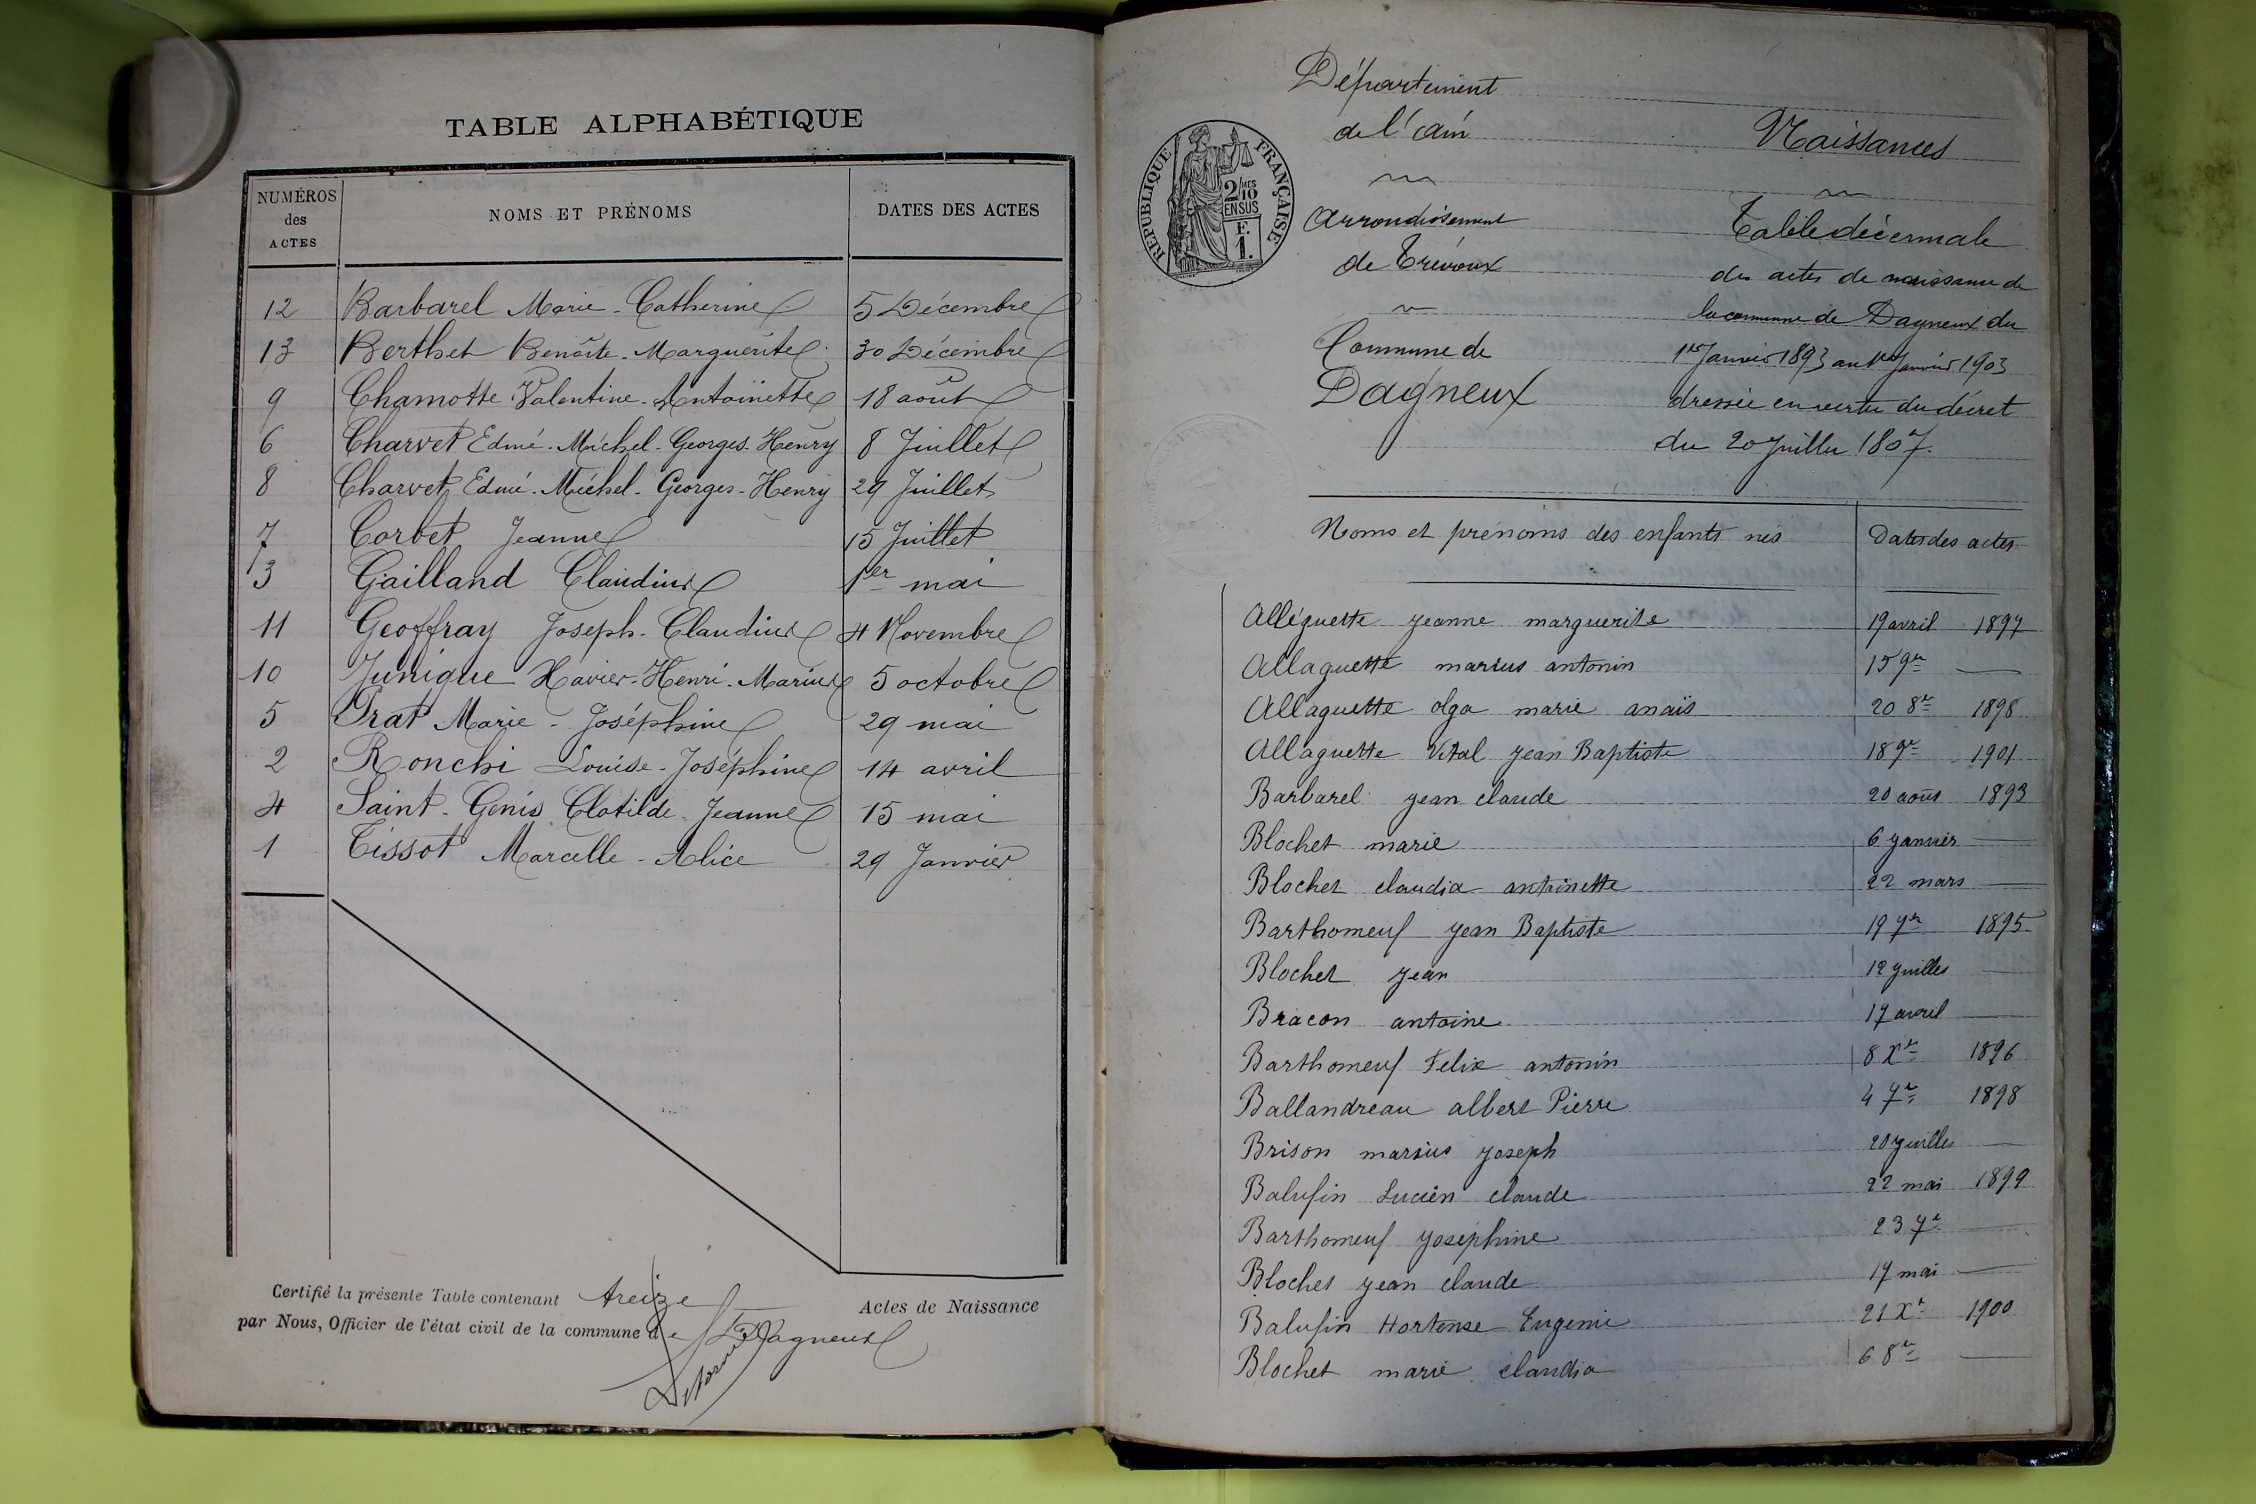 TABLE ALPHABÉTIQUE
NUMÉROS des ACTES NOMS ET PRÉNOMS DATES DES ACTES
12 Barbarel Marie-Catherine 5 Décembre
13 Berthet Benoîte-Marguerite 30 Décembre
9 Chamotte Valentine-Antoinette 18 août
6 Charvet Edmé-Michel-Georges-Henry 8 Juillet
8 Charvet Edmé-Michel-Georges-Henry 29 Juillet
7 Corbet Jeanne 15 Juillet
3 Gailland Claudius 1er mai
11 Geoffray Joseph-Claudius 4 Novembre
10 Junique Xavier-Henri-Marius 5 octobre
5 Prat Marie-Joséphine 29 mai
2 Ronchi Louise-Joséphine 14 avril
4 Saint-Genis Clotilde-Jeanne 15 mai
1 Tissot Marcelle-Alice 29 Janvier
Certifié la présente Table contenant treize Actes de Naissance
par Nous, Officier de l'état civil de la commune de Dagneux
RÉPUBLIQUE FRANÇAISE
2/10 MES
EN SUS
F.
1.
Département
de l'ain
Arrondissement
de Trévoux
Commune de
Dagneux
Naissances
Table décennale
des actes de naissance de
la commune de Dagneux du
1er Janvier 1893 au 1er Janvier 1903
dressée en vertu du décret
du 20 Juillet 1807.
Noms et prénoms des enfants nés Dates des actes
Alléguette jeanne marguerite 19 avril 1897
Allaguette marius antonin 15 9re —
Allaguette olga marie anaïs 20 8re 1898
Allaguette Vital jean Baptiste 18 9re 1901
Barbarel jean claude 20 août 1893
Blochet marie 6 janvier —
Blochet claudia antoinette 22 mars —
Barthomeuf jean Baptiste 19 7re 1895
Blochet jean 12 juillet —
Bracon antoine 17 avril —
Barthomeuf Felix antonin 8 Xre 1896
Ballandreau albert Pierre 4 7re 1898
Brison marius joseph 20 juillet —
Balufin Lucien claude 22 mai 1899
Barthomeuf josephine 23 7re —
Blochet jean claude 17 mai —
Balufin Hortense Eugenie 21 Xre 1900
Blochet marie claudia 6 8re —